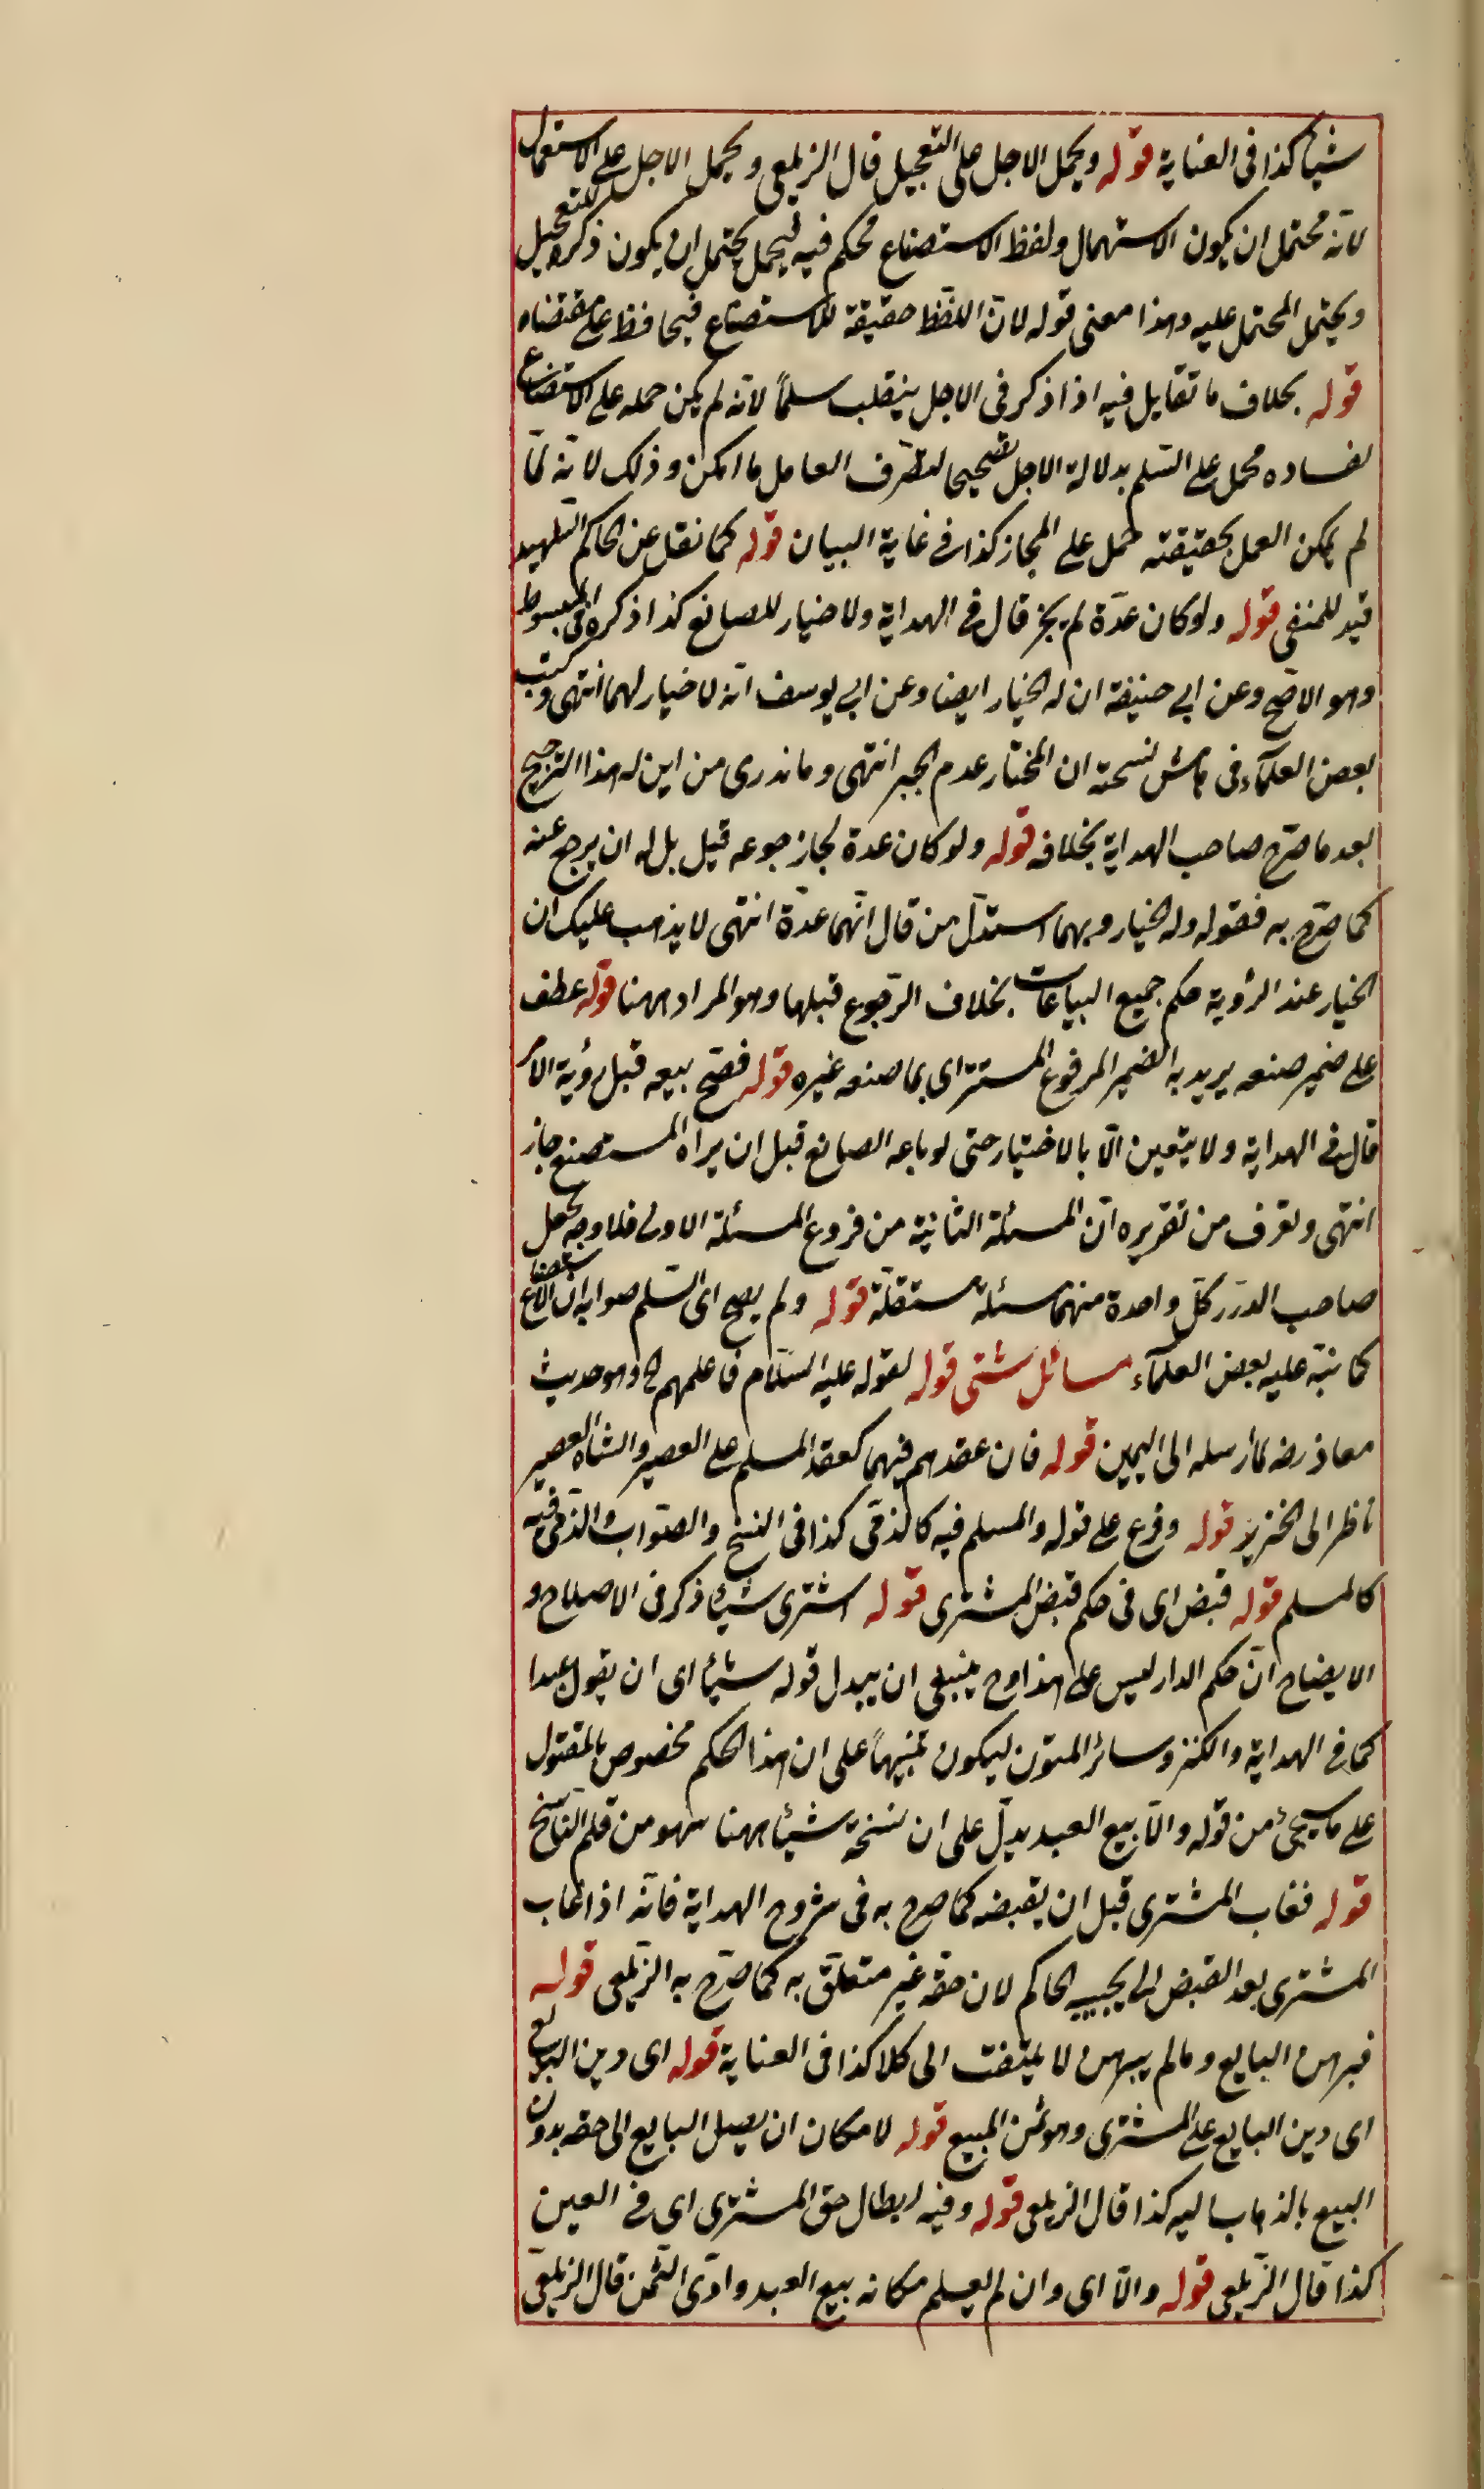 شيئا كذا فى العناية قوله ويحمل الاجل على التعجيل قال الزيلعى ويحمل الاجل على الاستعجال
لانه محتمل ان يكون الاستمهال ولفظ الاستصناع محكم فيه فيحمل يحتمل ان يكون ذكره للتعجيل
ويحتمل المحتمل عليه وهذا معنى قوله لان اللفظ حقيقة للاستصناع فيحافظ على مقتضاه
قوله بخلاف ما تقابل فيه اذا ذكر فى الاجل ينقلب سلماً لانه لم يكن حمله على الاستصناع
لفساده محمل على السّلم بدلالة الاجل تصحيحا لتصرف العامل ما امكن وذلك لانه لمّا
لم يمكن العمل بحقيقته حمل على المجاز كذا فى غاية البيان قوله كما نقل عن الحاكم الشهيد
قيد للمنفى قوله ولو كان عدّة لم يجز قال فى الهداية ولا خيار للصانع كذا ذكره فى المبسوط
وهو الاصح وعن ابى حنيفة ان له الخيار ايضا وعن ابى يوسف انه لا خيار لهما انتهى وكتب
بعض العلمآء فى هامش نسخة ان المختار عدم الجبر انتهى وما ندرى من اين له هذا الترجيح
بعد ما صرّح صاحب الهداية بخلافه قوله ولو كان عدة لجاز رجوعه قيل بل له ان يرجع عنه
كما صرّح به فقوله وله الخيار وبهما استدلّ من قال انّهما عدّة انتهى لا يذهب عليك ان
الخيار عند الرؤية حكم جميع البياعات بخلاف الرّجوع قبلها وهو المراد ههنا قوله عطف
على ضمير صنعه يريد به الضمير المرفوع المستتر اى بما صنعه غيره قوله فصحّ بيعه قبل رؤية الآمر
قال فى الهداية ولا يتعين الّا بالاختيار حتى لو باعه الصانع قبل ان يراه المستصنع جاز
انتهى وتعرف من تقريره انّ المسئلة الثانية من فروع المسئلة الاولى فلا وجه لجعل
صاحب الدرر كلّ واحدة منهما مسئلة مستقلّة قوله ولم يصح اى السّلم صوابه ان الاستصناع
كما نبّه عليه بعض العلمآء مسائل شتى قوله لقوله عليه السّلام فاعلمهم الخ وهو حديث
معاذ رضه لما أرسله الى اليمين قوله فان عقدهم فيهما كعقد المسلم على العصير والشاة العصير
ناظر الى الخنزير قوله وفرع على قوله والمسلم فيه كالذمّى كذا فى النسخ والصّواب والذّمى فيه
كالمسلم قوله قبض اى فى حكم قبض المشترى قوله اشترى شيئا ذكر فى الاصلاح و
الايضاح انّ حكم الدار ليس على هذا وح ينبغى ان يبدل قوله شيئا اى ان يقول عبدا
كما فى الهداية والكنز وسائر المتون ليكون تنبيهاً على ان هذا الحكم مخصوص بالمنقول
على ما سيجئ من قوله والّا بيع العبد يدلّ على ان نسخة شيئا ههنا سهو من قلم النّاسخ
قوله فغاب المشترى قبل ان يقبضه كما صرح به فى شروح الهداية فانّه اذا غاب
المشترى بعد القبض لا يجيبه الحاكم لان حقه غير متعلّق به كما صرّح به الزّيلعى قوله
فبرهن البايع وما لم يبرهن لا يلتفت الى كلا كذا فى العناية قوله اى دين البايع
اى دين البايع على المشترى وهو ثمن المبيع قوله لامكان ان يصل البايع الى حقه بدون
البيع بالذهاب اليه كذا قال الزيلعى قوله وفيه ابطال حق المشترى اى فى العين
كذا قال الزّيلعى قوله والّا اى وان لم يعلم مكانه بيع العبد وادّى الثّمن قال الزيلعى